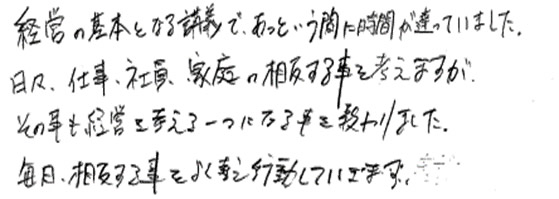 経営の基本となる講義で、あっという間に時間が達っていました。
日々、仕事、社員、家庭の相反する事を考えますが、
その事も経営を考える一つになる事を教わりました。
毎日、相反する事をよく考え行動していきます。